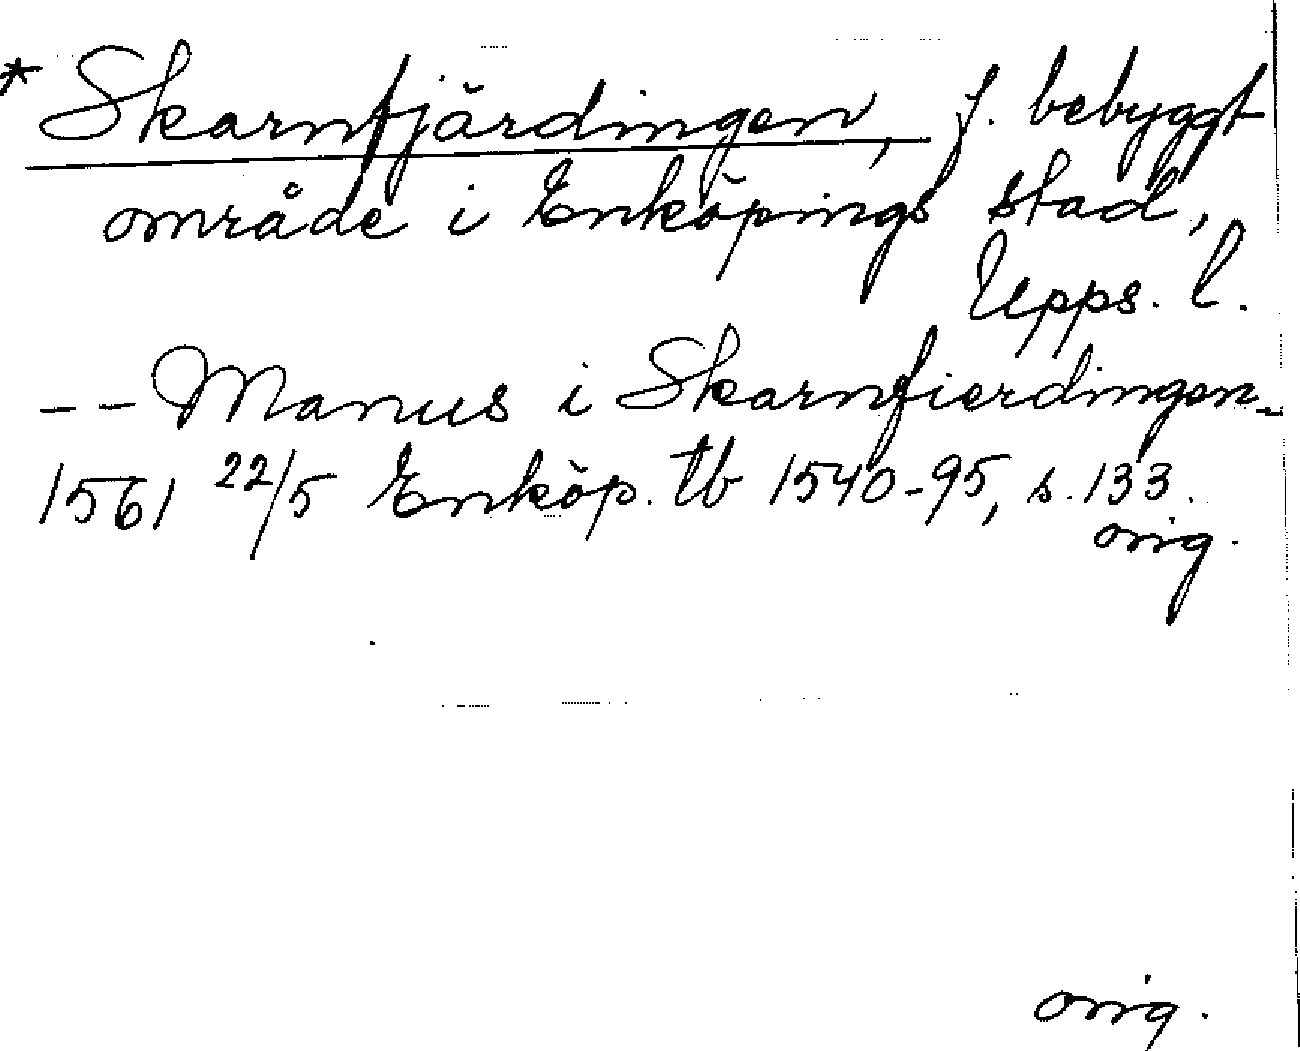 * Skarnfjärdingen, f. bebyggt
område i Enköpings stad,
Upps. l.
-- Manus i Skarnfierdingen-
1561 22/5 Enköp. tb 1540-95, s. 133.
orig.
orig.